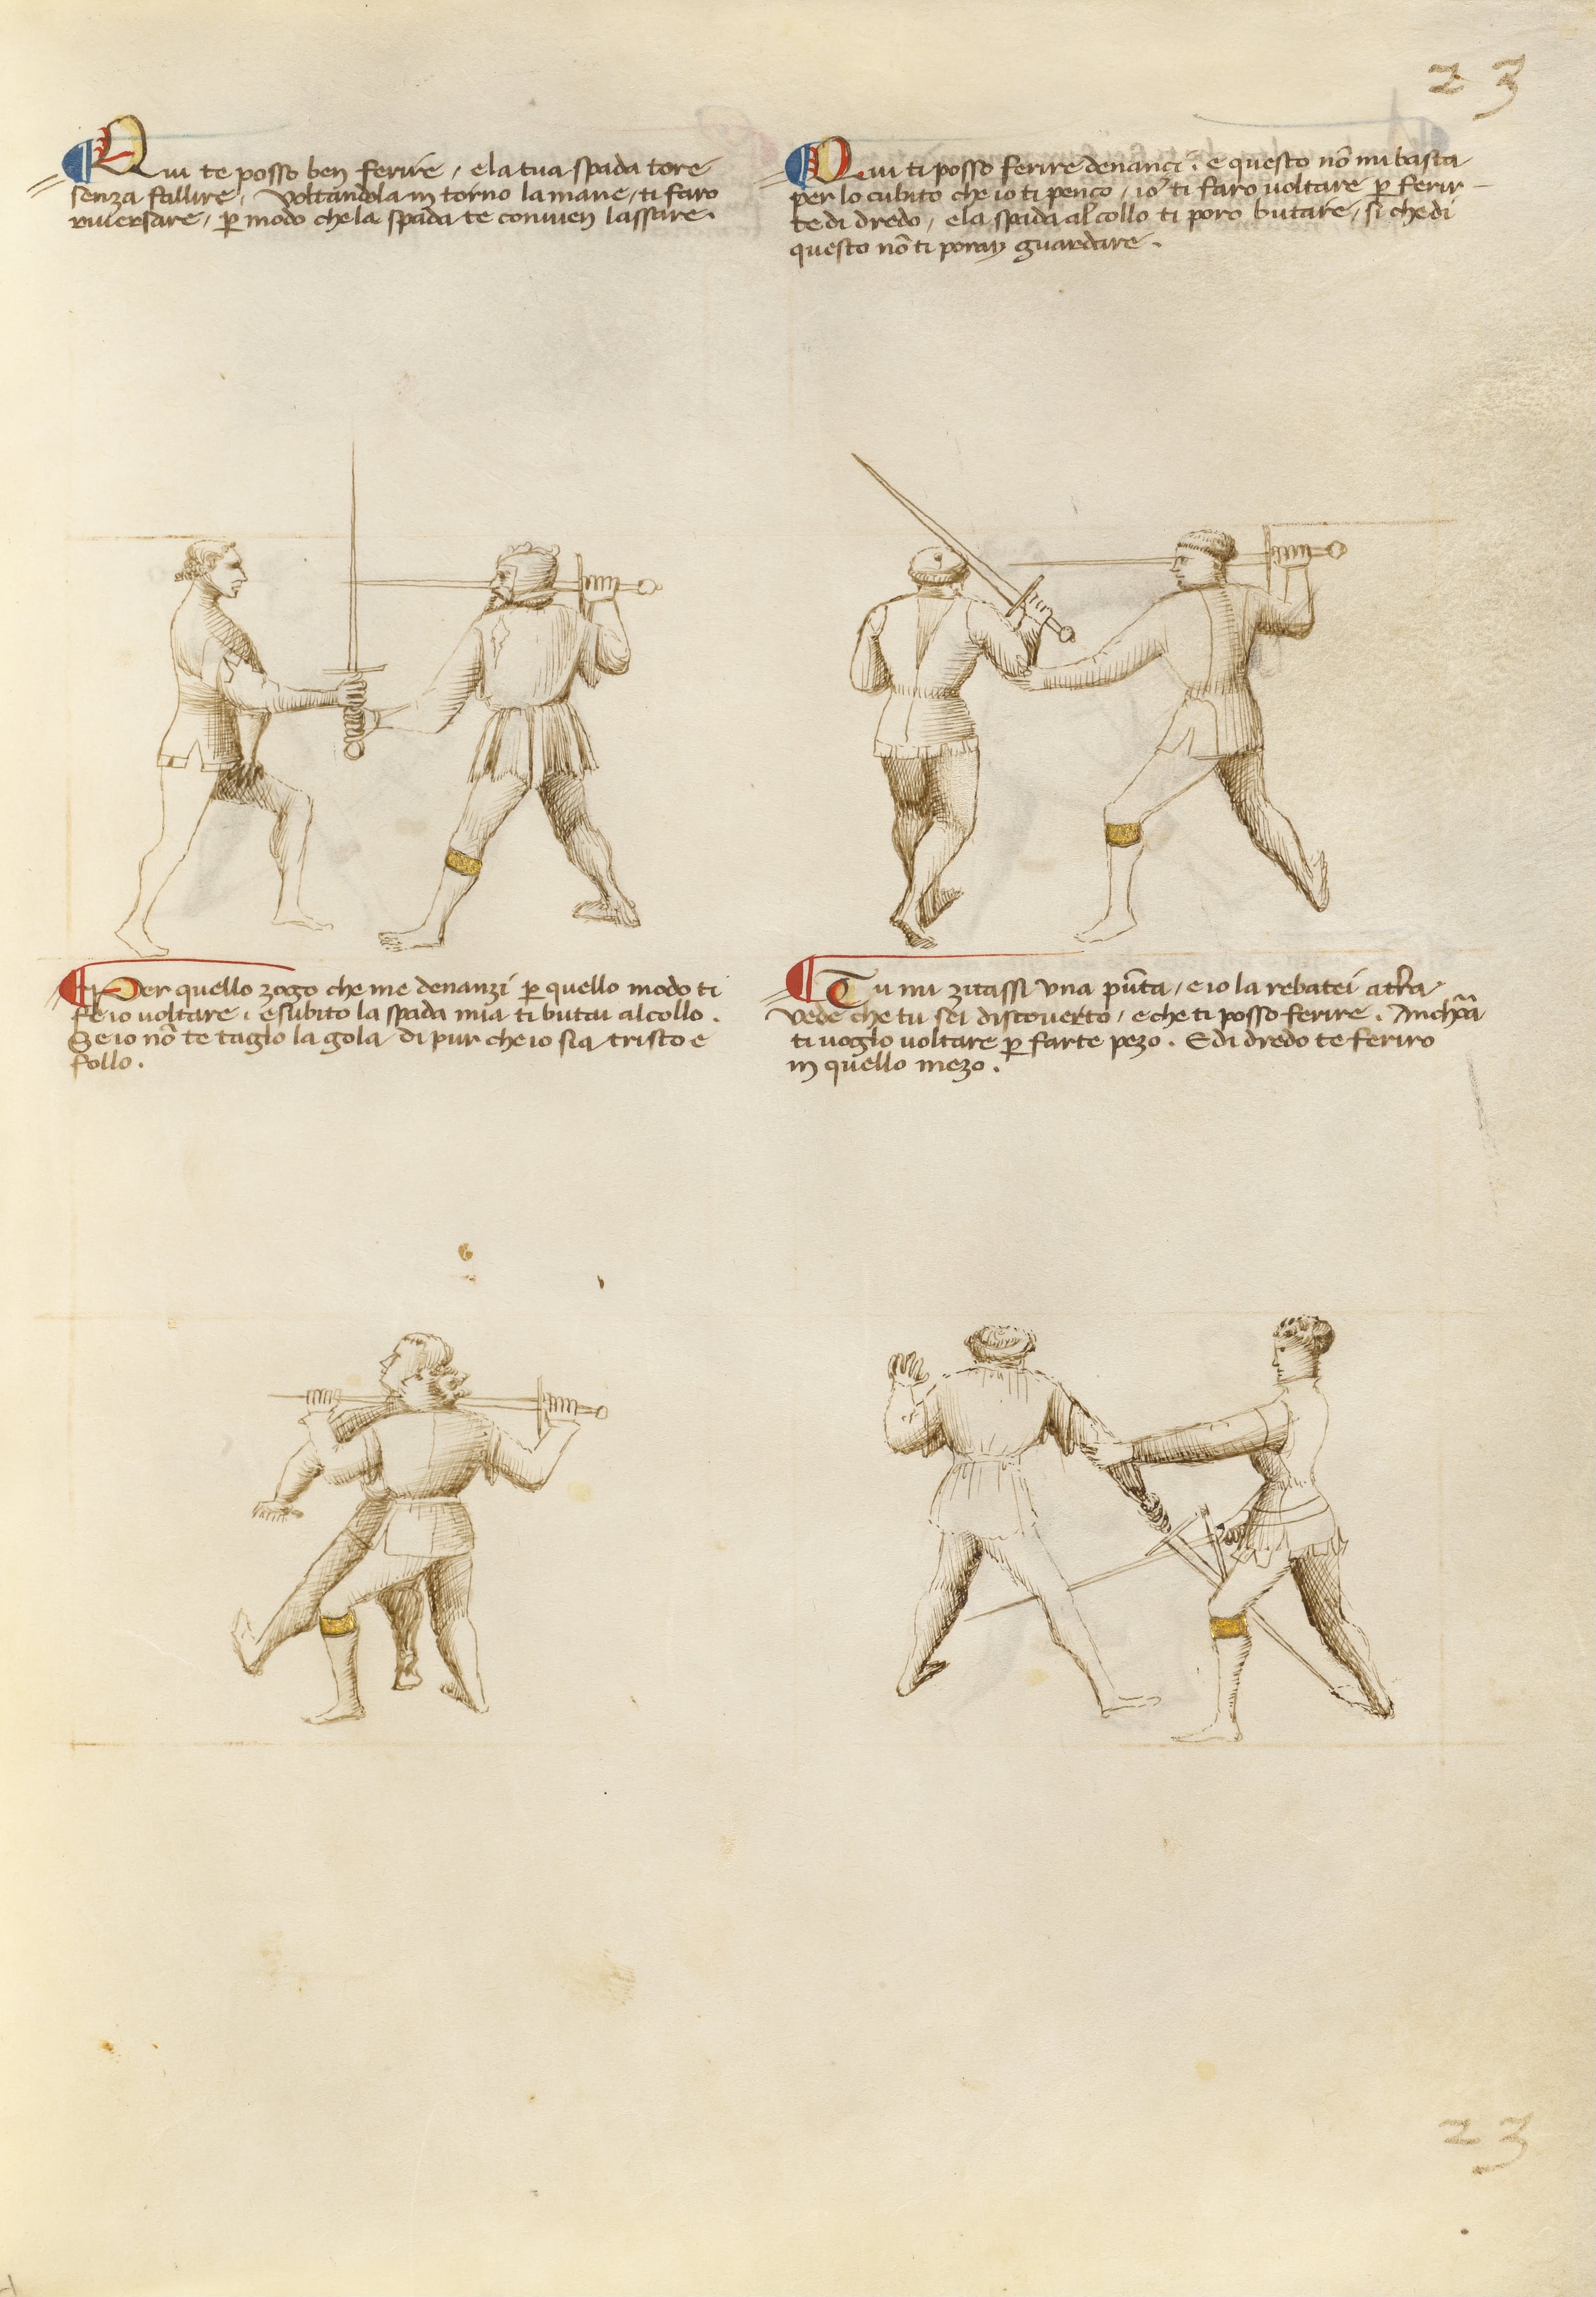 23
Qui te posso ben ferire / e la tua spada tore
senza fallire, Voltandola in torno la mane / ti faro
riversare / p̱ modo che la spada te convien lassare.
Qui ti posso ferire denanci. e questo nō mi basta
per lo cubito che io ti penço / io ti faro voltare p̱ ferir-
te di dredo / e la spada al collo ti poro butare / si che di
questo nō ti poray guardare.
Per quello zogo che me denanzi p̱ quello modo ti
fe io voltare. e subito la spada mia ti butai al collo.
Se io nō te taglo la gola di pur che io sia tristo e
follo.
Tu mi zitassi una pūta / e io la rebatei a tr̄ra
Vede che tu sei discoverto / e che ti posso ferire. Anchora
ti voglo voltare p̱ farte pezo. E di dredo te feriro
in quello mezo.
23